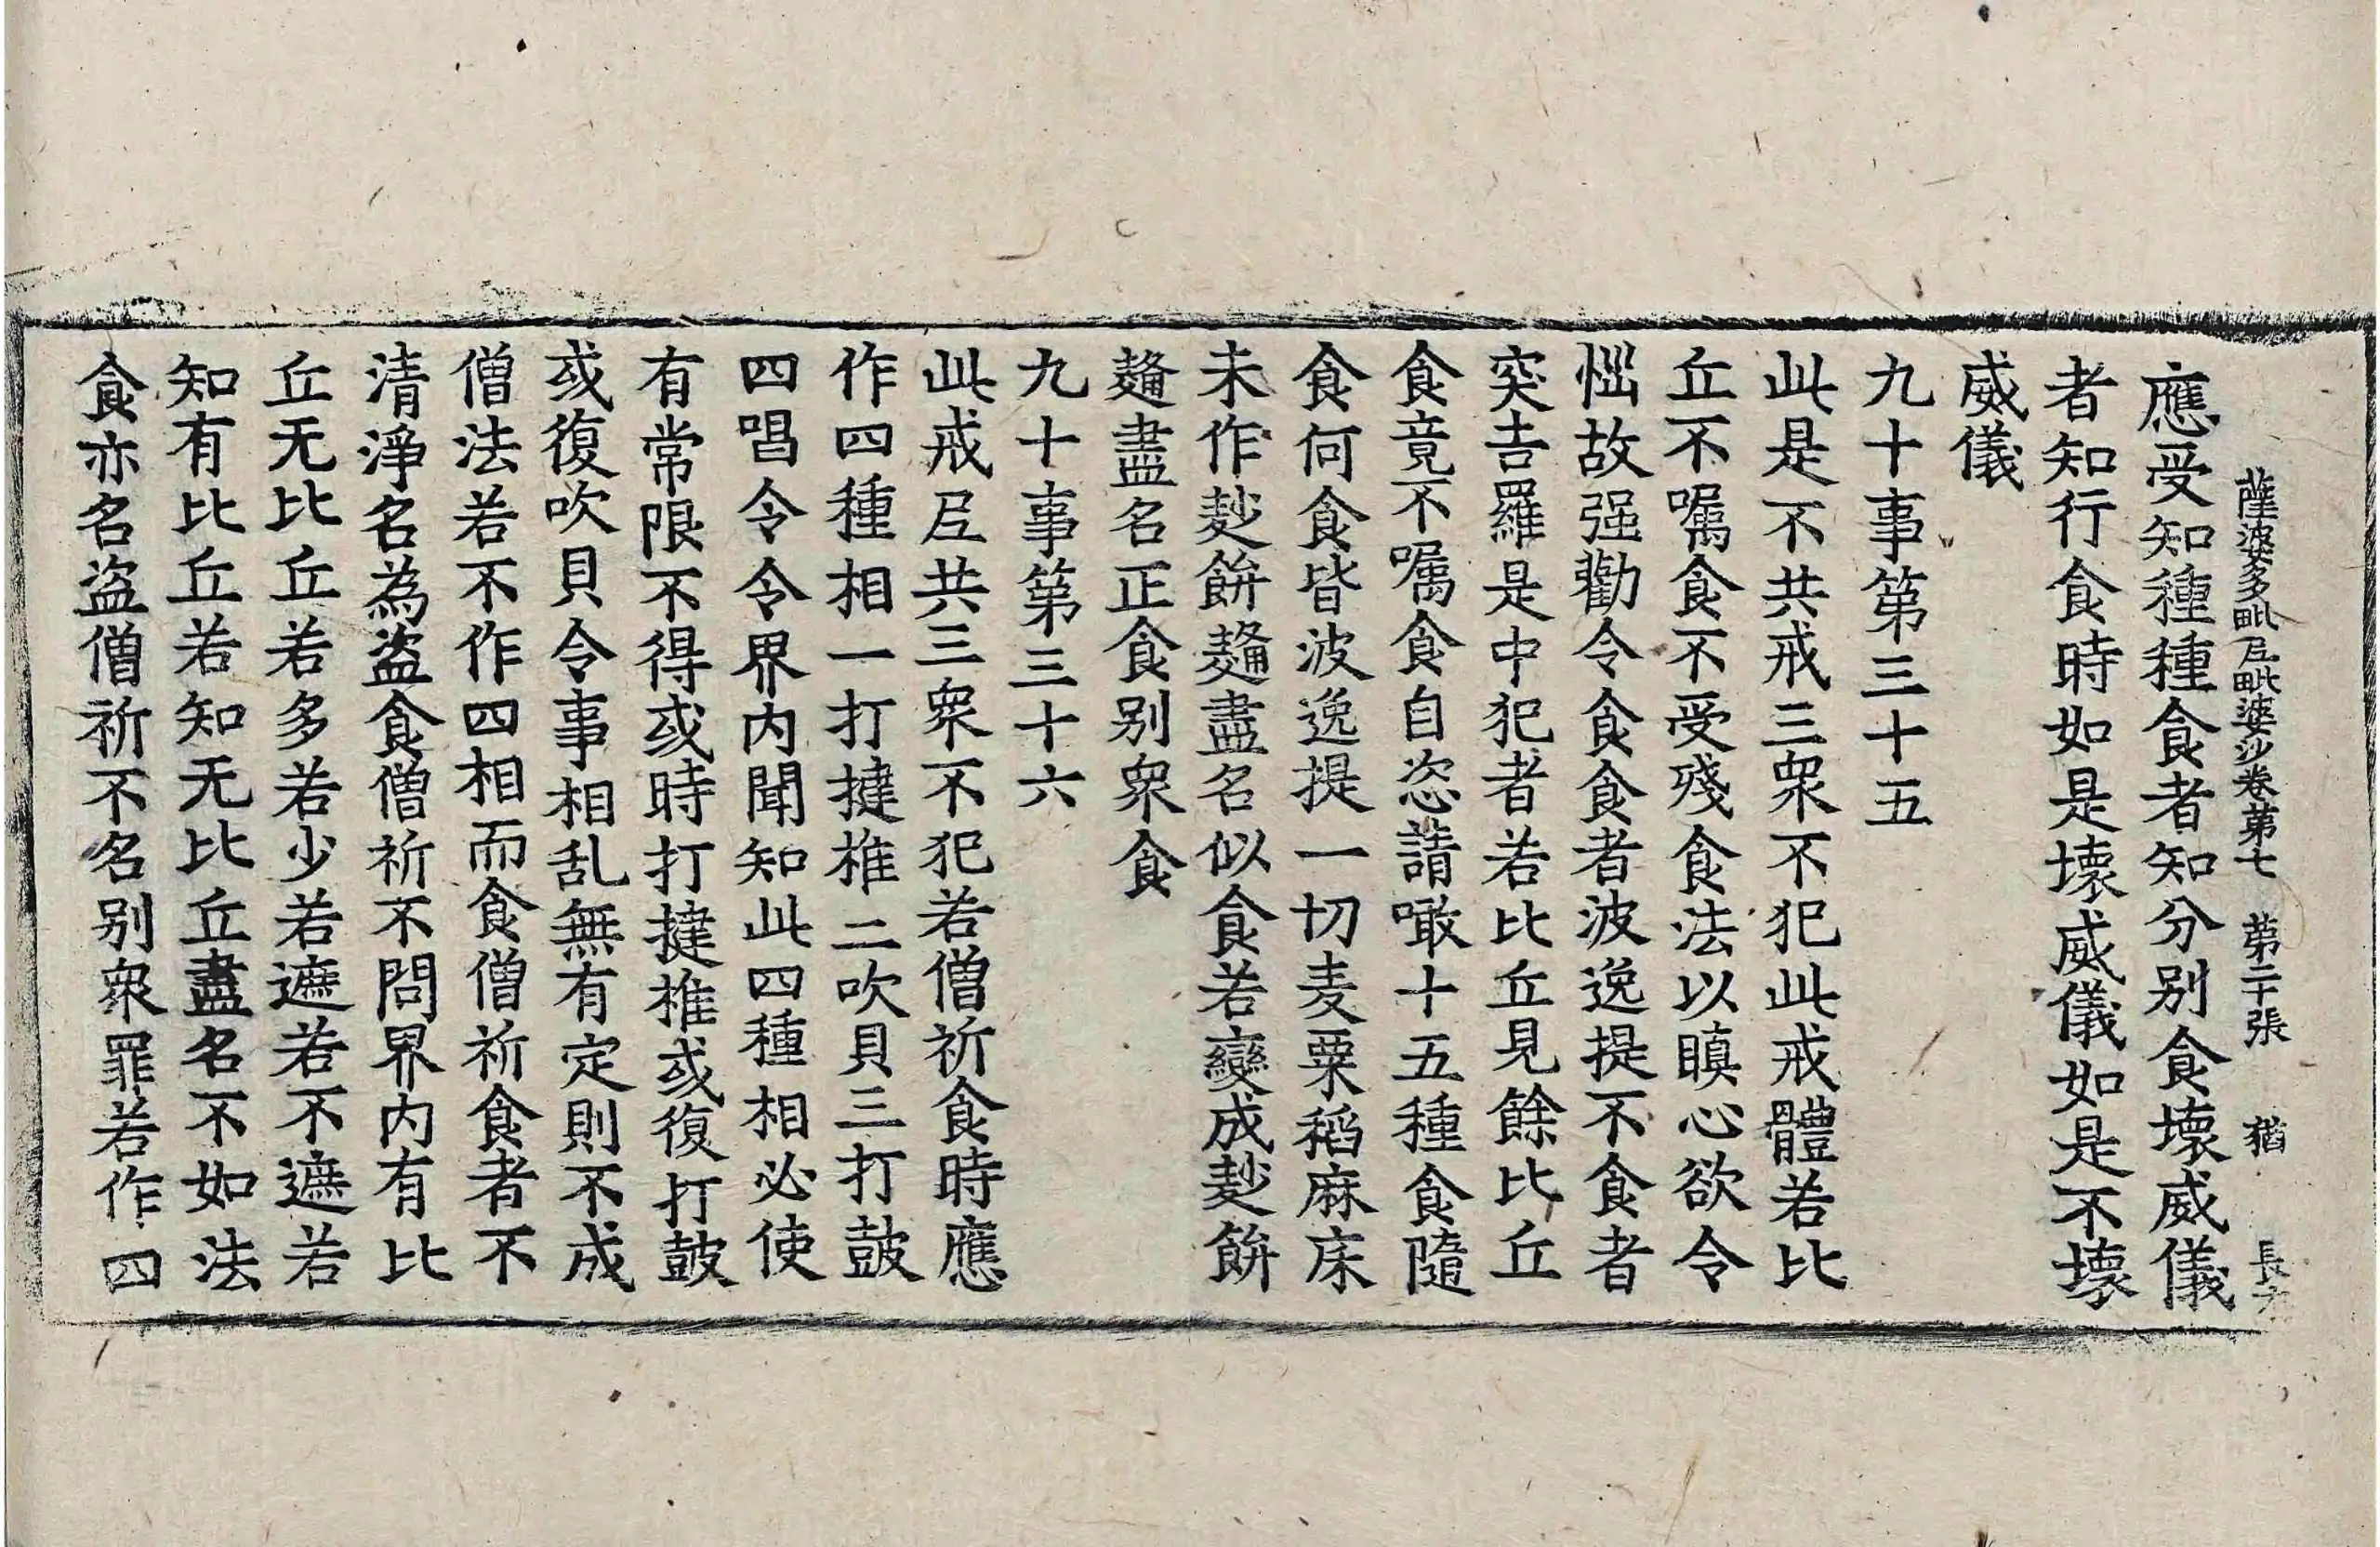 薩婆多毗尼毗婆沙卷第七 第二十張 猶 長
應受知種種食者知分別食壞威儀
者知行食時如是壞威儀如是不壞
威儀
九十事第三十五
此是不共戒三衆不犯此戒體若比
丘不囑食不受殘食法以瞋心欲令
惱故强勸令食食者波逸提不食者
突吉羅是中犯者若比丘見餘比丘
食竟不囑食自恣請噉十五種食隨
食何食皆波逸提一切麦粟稻麻床
未作麨餅麹盡名似食若變成麨餅
麹盡名正食别衆食
九十事第三十六
此戒尼共三衆不犯若僧祈食時應
作四種相一打揵椎二吹貝三打鼓
四唱令令界内聞知此四種相必使
有常限不得或時打揵椎或復打鼓
或復吹貝令事相乱無有定則不成
僧法若不作四相而食僧祈食者不
清淨名為盗食僧祈不問界内有比
丘无比丘若多若少若遮若不遮若
知有比丘若知无比丘盡名不如法
食亦名盗僧祈不名别衆罪若作四